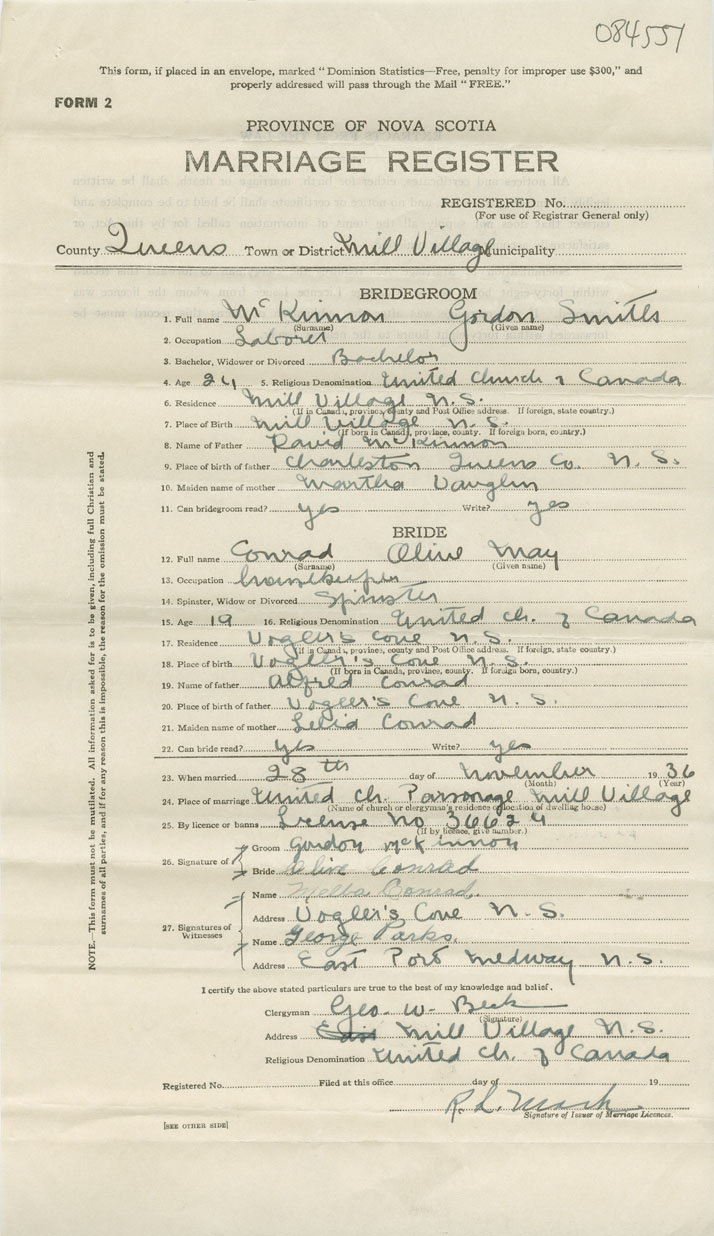 084551
This form, if placed in an envelope, marked "Dominion Statistics—Free, penalty for improper use $300," and
properly addressed will pass through the Mail "FREE."
FORM 2
PROVINCE OF NOVA SCOTIA
MARRIAGE REGISTER
REGISTERED No.
(For use of Registrar General only)
County Queens Town or District Mill Village Municipality
BRIDEGROOM
1. Full name McKinnon Gordon Smith
(Surname) (Given name)
2. Occupation Laborer
3. Bachelor, Widower or Divorced Bachelor
4. Age 24 5. Religious Denomination United Church of Canada
6. Residence Mill Village N.S.
(If in Canada, province, county and Post Office address. If foreign, state country.)
7. Place of Birth Mill Village N.S.
(If born in Canada, province, county. If foreign born, country.)
8. Name of Father David McKinnon
9. Place of birth of father Charleston Queens Co. N.S.
10. Maiden name of mother Martha
11. Can bridegroom read? yes Write? yes
BRIDE
12. Full name Conrad Olive May
(Surname) (Given name)
13. Occupation housekeeper
14. Spinster, Widow or Divorced Spinster
15. Age 19 16. Religious Denomination United Ch. of Canada
17. Residence Vogler's Cove N.S.
(If in Canada, province, county and Post Office address. If foreign, state country.)
18. Place of birth Vogler's Cove N.S.
(If born in Canada, province, county. If foreign born, country.)
19. Name of father Alfred Conrad
20. Place of birth of father Vogler's Cove N.S.
21. Maiden name of mother Lelia Conrad
22. Can bride read? yes Write? yes
23. When married 28th day of November 1936
(Month) (Year)
24. Place of marriage United Ch. Parsonage Mill Village
(Name of church or clergyman's residence or location of dwelling house)
25. By licence or banns License No 36624
(If by licence, give number.)
26. Signature of Groom Gordon McKinnon
Bride Olive Conrad
27. Signatures of Witnesses Name Melba Conrad.
Address Vogler's Cove N.S.
Name George Parks.
Address East Port Medway N.S.
I certify the above stated particulars are true to the best of my knowledge and belief.
Clergyman Geo. W. Beck
(Signature)
Address East Mill Village N.S.
Religious Denomination United Ch. of Canada
Registered No. Filed at this office day of 19
R. L. Mack
Signature of Issuer of Marriage Licences.
[SEE OTHER SIDE]
NOTE.—This form must not be mutilated. All information asked for is to be given, including full Christian and
surnames of all parties, and if for any reason this is impossible, the reason for the omission must be stated.